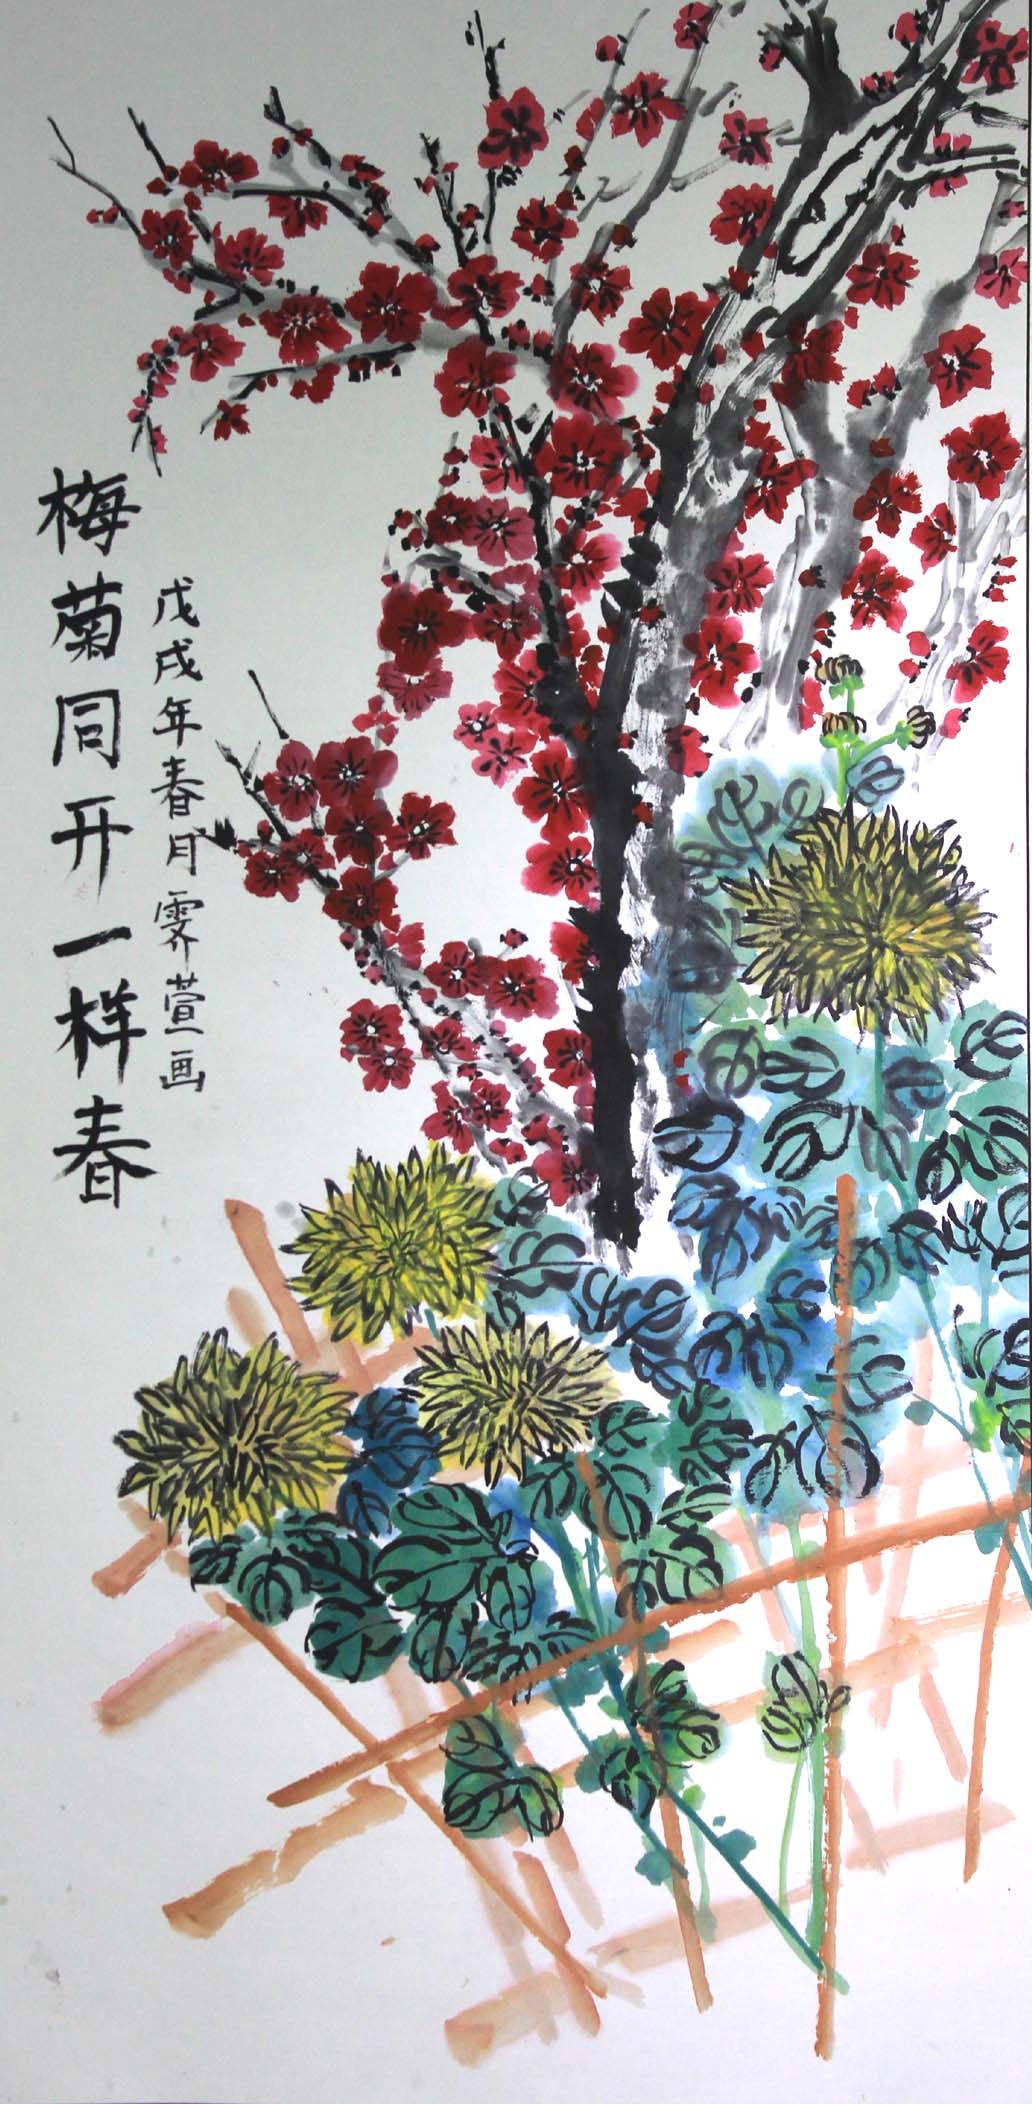 梅菊同开一样春
戊戌年春月霁萱画